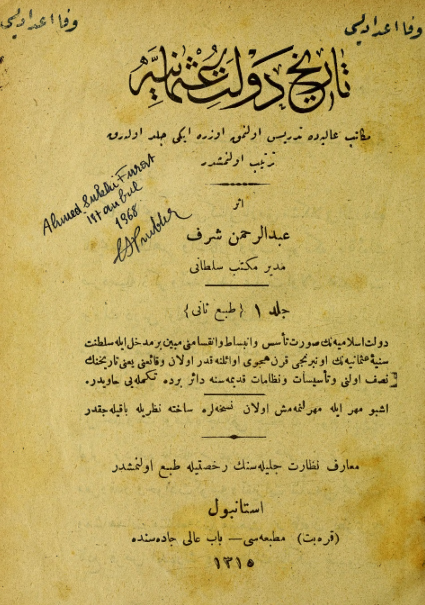 وفا اعدادیسی
وفا اعدادیسی
تاریخ دولت عثمانیه
مكاتب عالیه‌ده تدریس اولنمق اوزره ایكی جلد اوله‌رق
ترتیب اولنمشدر
Ahmed Subhi Furat
istanbul
1968
اثر
عبدالرحمن شرف
مدیر مكتب سلطانی
جلد ١ {طبع ثانی}
دولت اسلامیه‌نك صورت تأسس وانبساط وانقسامنی مبین بر مدخل ایله سلطنت
سنیهٔ عثمانیه‌نك اون برنجی قرن هجری اوائلنه قدر اولان وقائعنی یعنی تاریخنك
نصف اولنی وتأسیسات ونظامات قدیمه‌سنه دائر برده تكمله‌یی حاویدر.
اشبو مهر ایله مهرلنمه‌مش اولان نسخه‌لره ساخته نظریله باقیله‌جقدر
معارف نظارت جلیله‌سنك رخصتیله طبع اولنمشدر
استانبول
(قره‌بت) مطبعه‌سی — باب عالی جاده‌سنده
١٣١٥